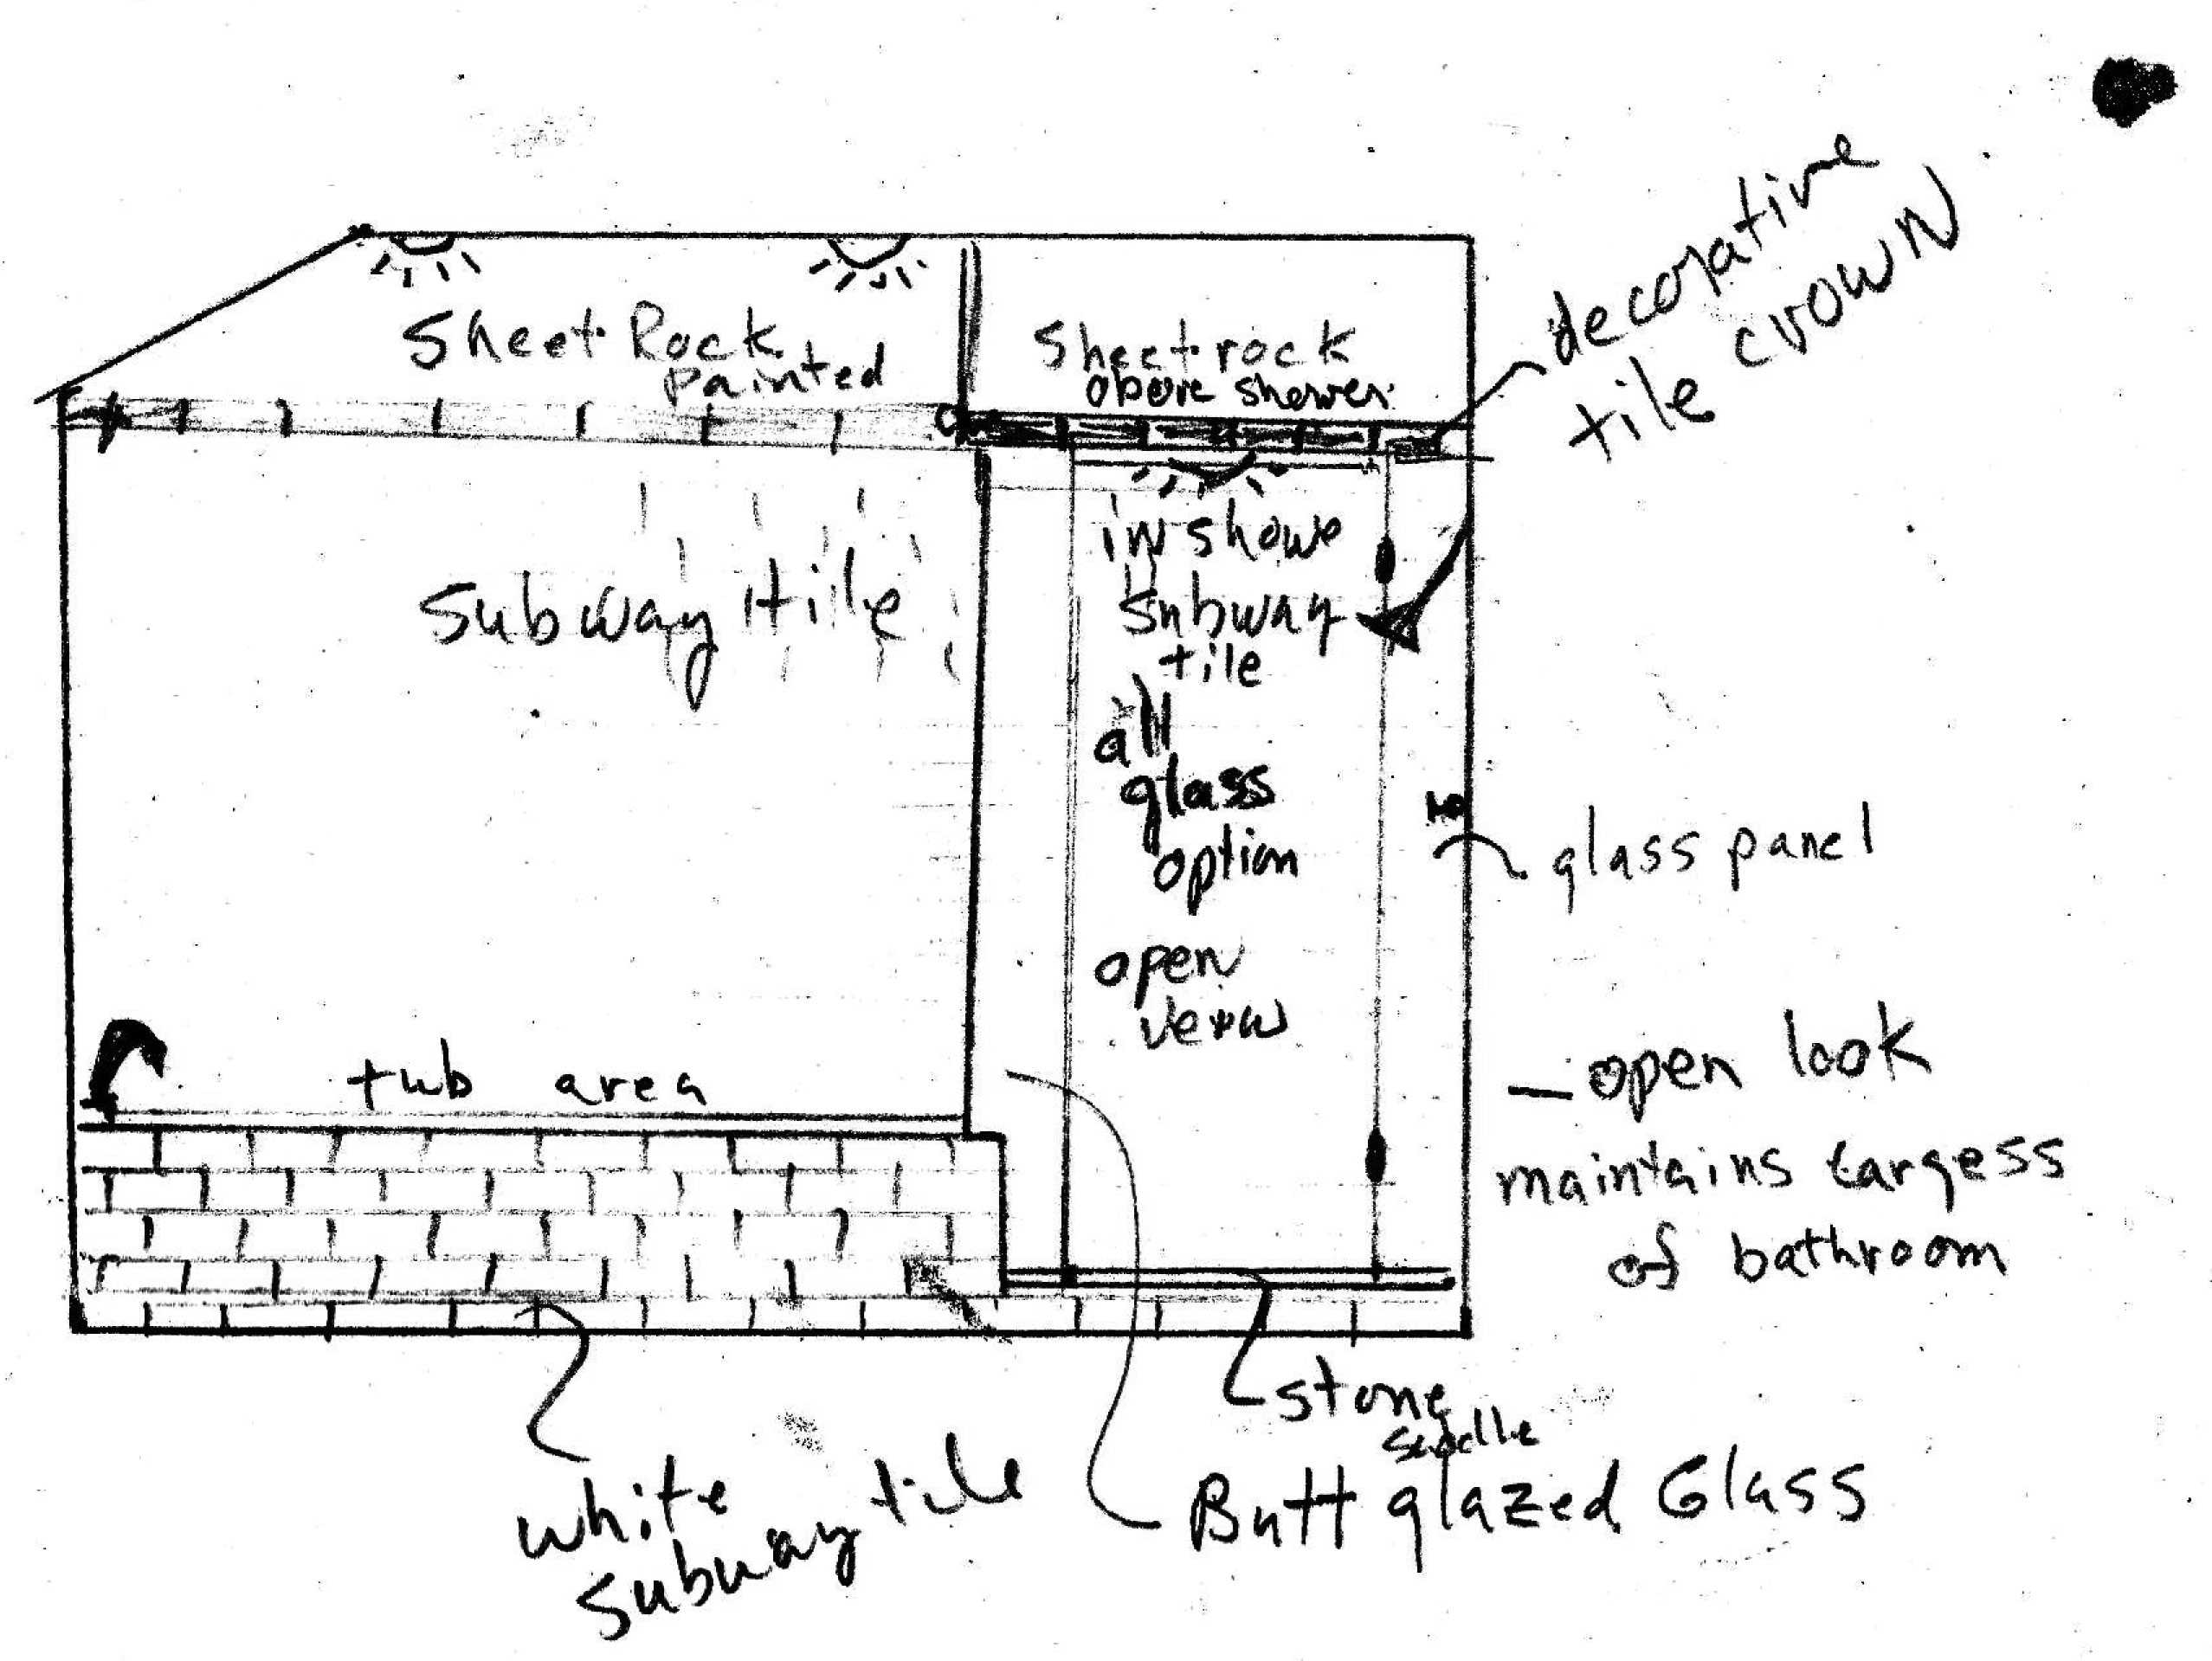 decorative
tile crown
Sheet Rock
painted
Sheetrock
above shower
in showe
Subway
tile
Subway tile
all
glass
option
glass panel
open
veiw
tub area
— open look
maintains largess
of bathroom
stone
saddle
Butt glazed Glass
white
subway tile